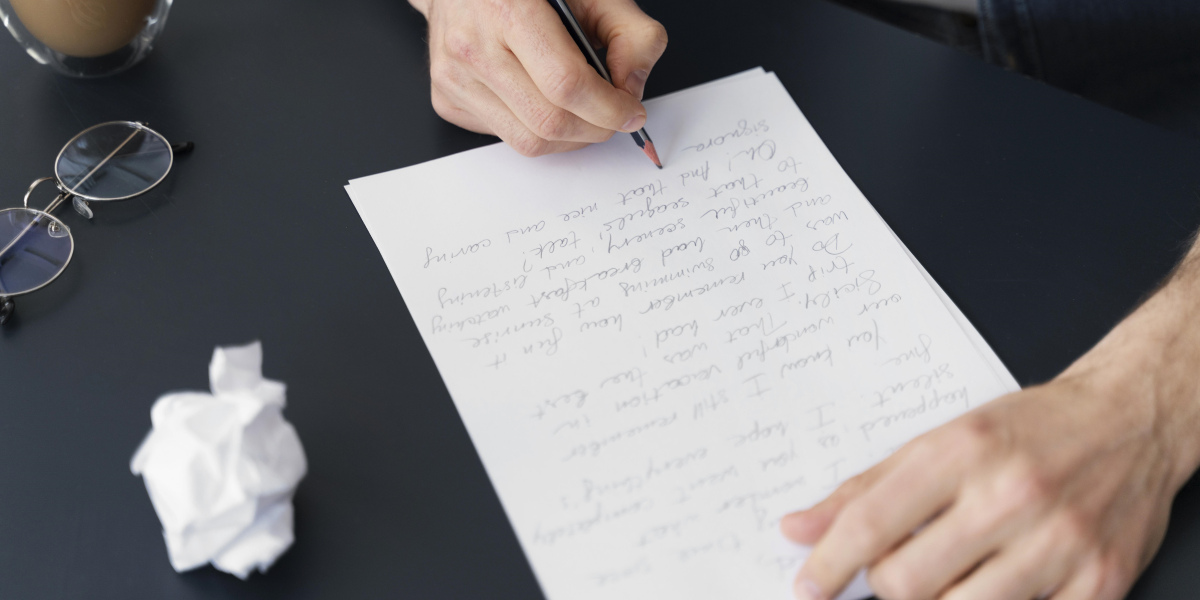 time, since
I
happened, as you went completely
silent. I hope everything's
fine
you know I still remember
our wonderful vacation in
Sicily. That was the best
trip I ever had!
Do you remember how fun it
was to go swimming at sunrise
and then had breakfast watching
beautiful scenery and listening
to that seagulls' talk?
Oh! And that nice and caring
signora